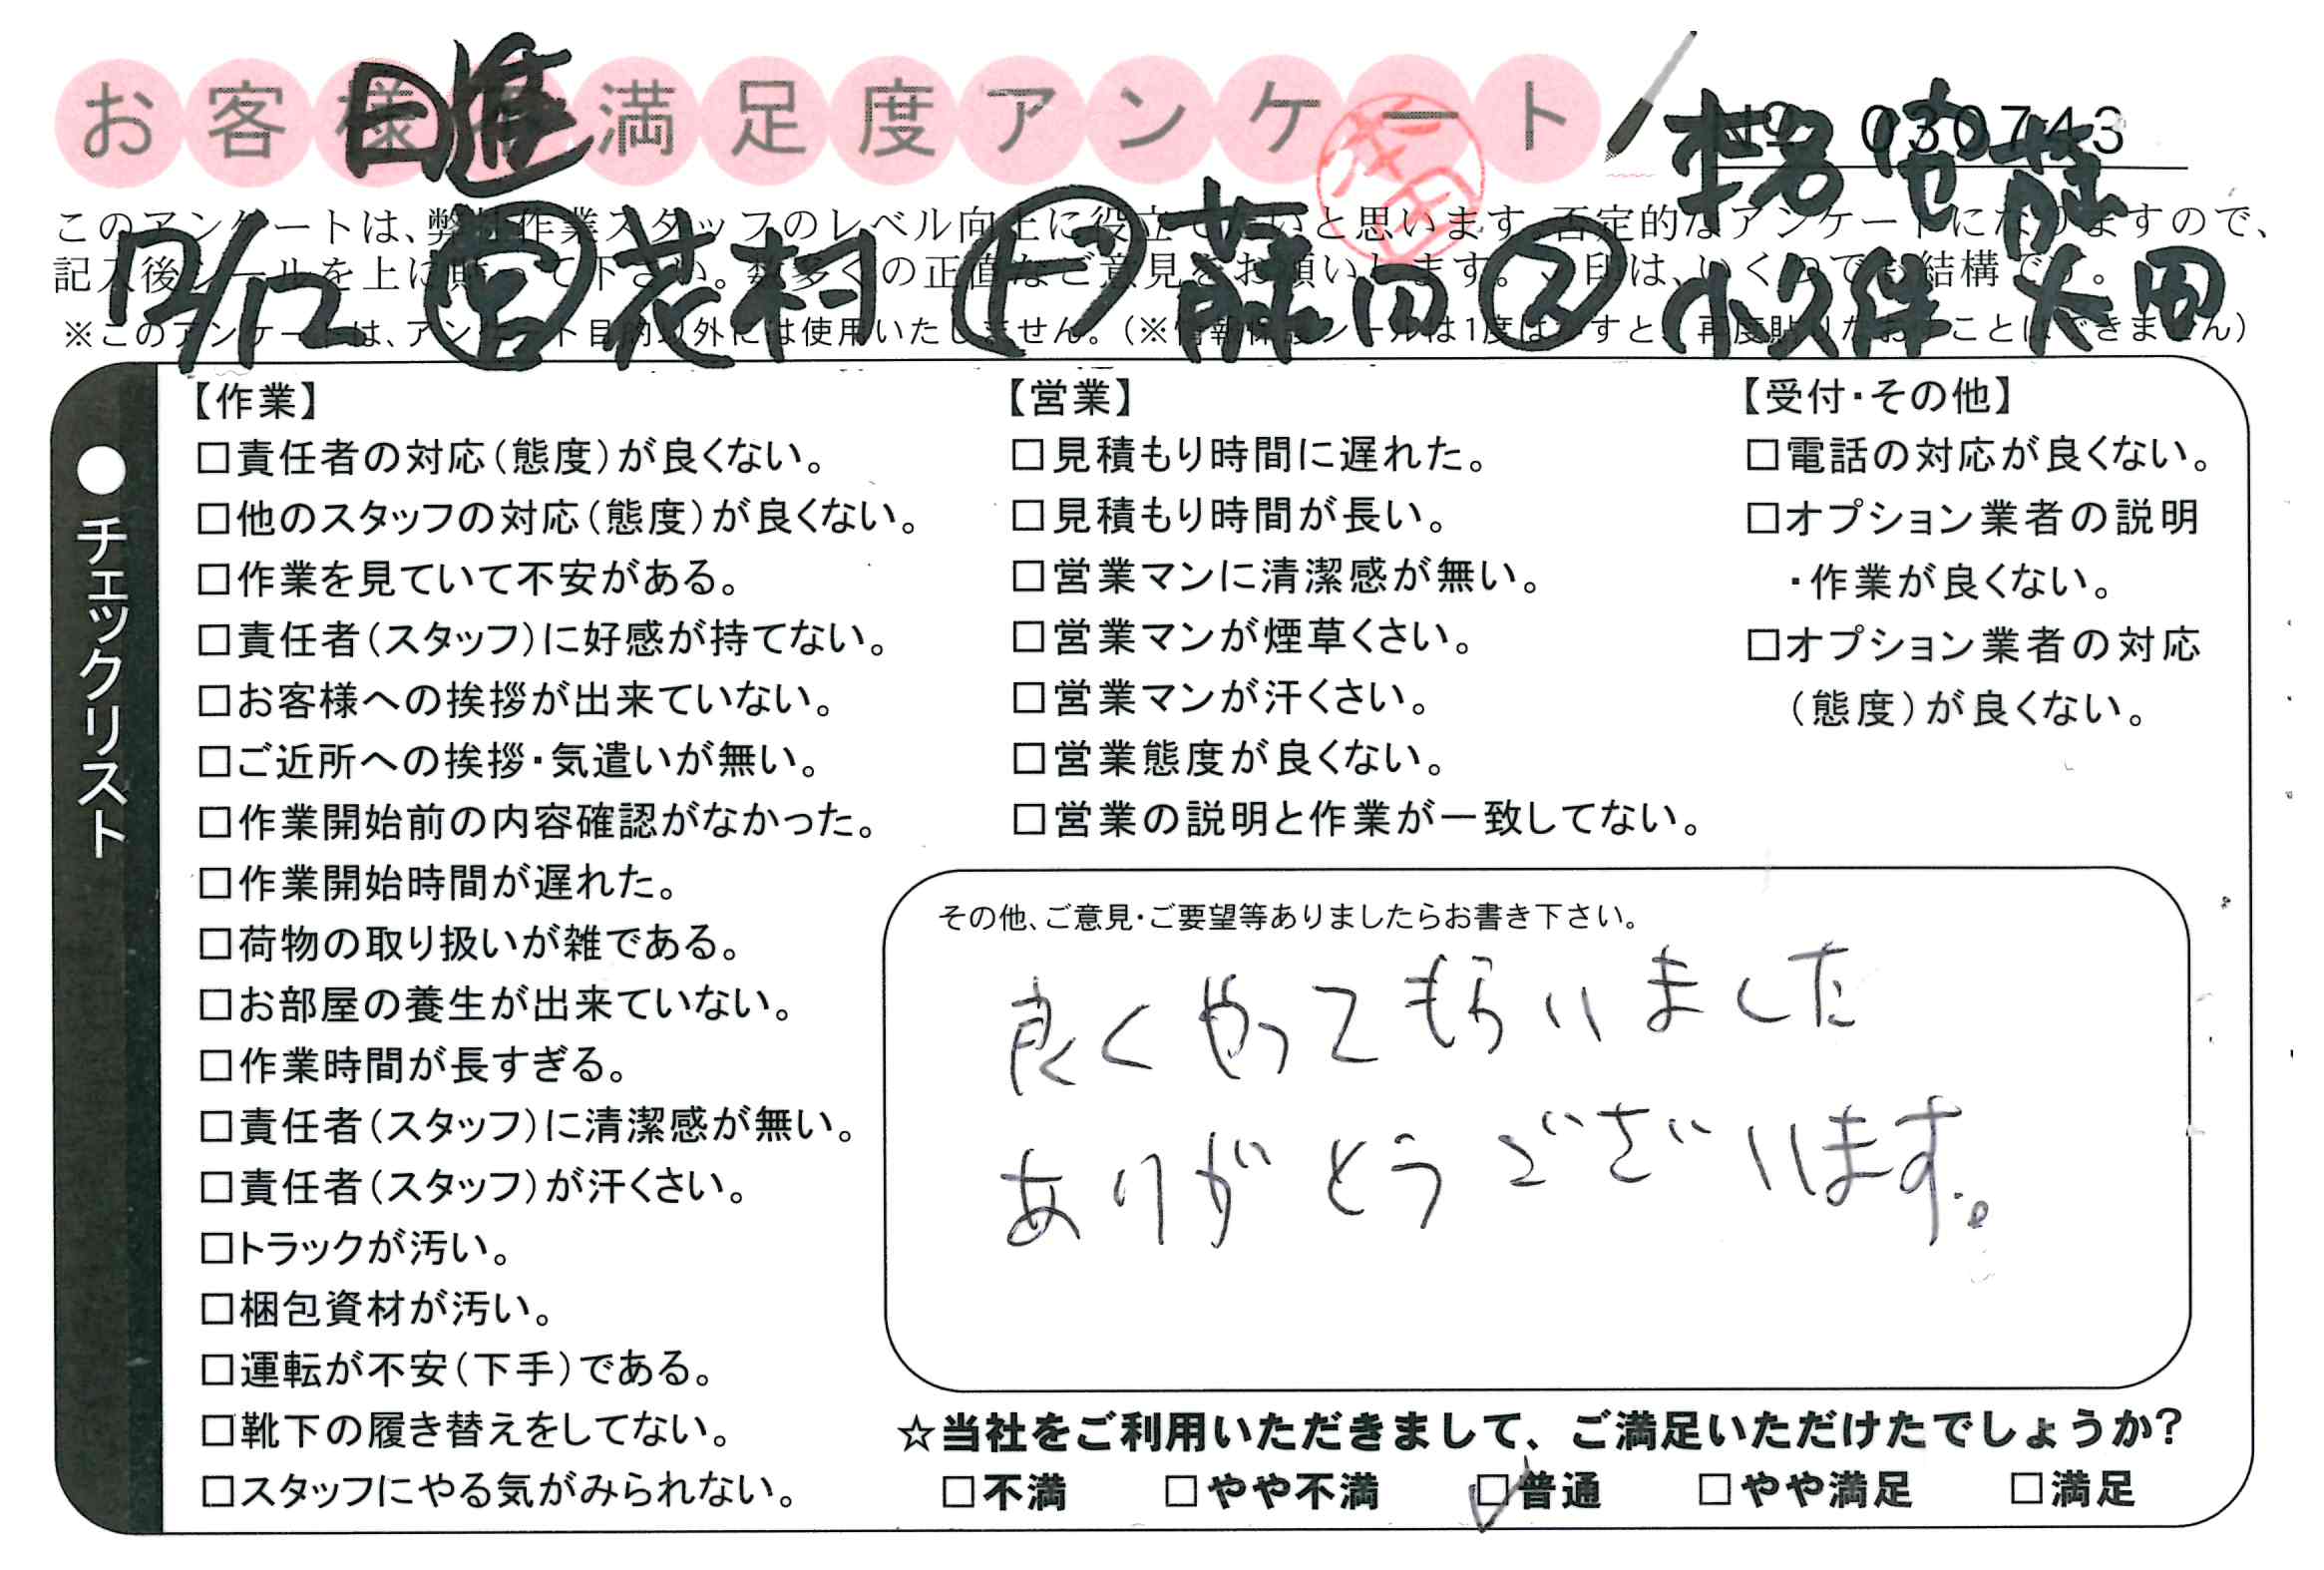 お客様 満足度アンケート
日進
No 030743
安藤
12/12 営 花村 藤田 2 小久保 太田
このアンケートは、弊社作業スタッフのレベル向上に役立てたいと思います。否定的なアンケートになりますので、
記入後シールを上に貼って下さい。数多くの正直なご意見をお願いします。✓印は、いくつでも結構です。
※このアンケートは、アンケート目的以外には使用いたしません。(※情報保護シールは1度はがすと、再度貼りなおすことはできません)
●チェックリスト
【作業】
□責任者の対応(態度)が良くない。
□他のスタッフの対応(態度)が良くない。
□作業を見ていて不安がある。
□責任者(スタッフ)に好感が持てない。
□お客様への挨拶が出来ていない。
□ご近所への挨拶・気遣いが無い。
□作業開始前の内容確認がなかった。
□作業開始時間が遅れた。
□荷物の取り扱いが雑である。
□お部屋の養生が出来ていない。
□作業時間が長すぎる。
□責任者(スタッフ)に清潔感が無い。
□責任者(スタッフ)が汗くさい。
□トラックが汚い。
□梱包資材が汚い。
□運転が不安(下手)である。
□靴下の履き替えをしてない。
□スタッフにやる気がみられない。
【営業】
□見積もり時間に遅れた。
□見積もり時間が長い。
□営業マンに清潔感が無い。
□営業マンが煙草くさい。
□営業マンが汗くさい。
□営業態度が良くない。
□営業の説明と作業が一致してない。
【受付・その他】
□電話の対応が良くない。
□オプション業者の説明
・作業が良くない。
□オプション業者の対応
(態度)が良くない。
その他、ご意見・ご要望等ありましたらお書き下さい。
良くやってもらいました
ありがとうございます。
☆当社をご利用いただきまして、ご満足いただけたでしょうか?
□不満 □やや不満 ☑普通 □やや満足 □満足